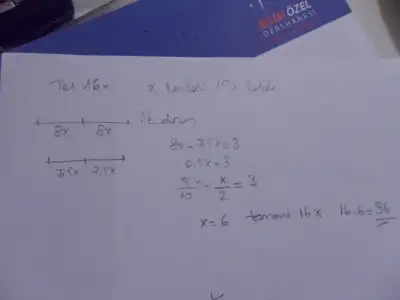 ÖZEL
DERSHANESİ
Tel 16x x kesildi 15x kaldı
8x 8x ilk durum
7,5x 7,5x
8x - 7,5x = 3
0,5x = 3
5x/10 = x/2 = 3
x = 6 tamamı 16x 16.6 = 96